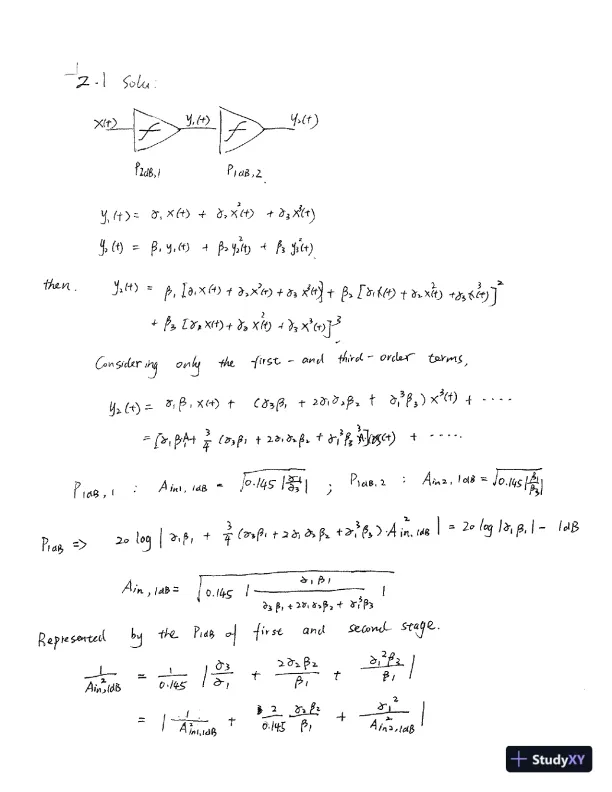 2.1 Solu:
x(t) y₁(t) y₂(t)
P₂dB,1 P₁dB,2
y₁(t) = α₁ x(t) + α₂ x²(t) + α₃ x³(t)
y₂(t) = β₁ y₁(t) + β₂ y₁²(t) + β₃ y₁³(t)
then. y₂(t) = β₁ [α₁ x(t) + α₂ x²(t) + α₃ x³(t)] + β₂ [α₁ x(t) + α₂ x²(t) + α₃ x³(t)]²
+ β₃ [α₁ x(t) + α₂ x²(t) + α₃ x³(t)]³
Considering only the first- and third-order terms,
y₂(t) = α₁ β₁ x(t) + (α₃β₁ + 2α₁α₂β₂ + α₁³β₃) x³(t) + ....
= [α₁ β₁A + ¾ (α₃β₁ + 2α₁α₂β₂ + α₁³β₃)A³] (t) + ....
P₁dB,1 : Ain1,1dB = √(0.145 |α₁/α₃|) ; P₁dB,2 : Ain2,1dB = √(0.145 |β₁/β₃|)
P₁dB => 20 log | α₁β₁ + ¾ (α₃β₁ + 2α₁α₂β₂ + α₁³β₃) · A²in,1dB | = 20 log |α₁β₁| - 1dB
Ain,1dB = √(0.145 | α₁β₁ / (α₃β₁ + 2α₁α₂β₂ + α₁³β₃) |)
Represented by the P₁dB of first and second stage.
1/A²in,1dB = 1/0.145 | α₃/α₁ + 2α₂β₂/β₁ + α₁²β₃/β₁ |
= | 1/A²in1,1dB + 2/0.145 α₂β₂/β₁ + α₁²/A²in2,1dB |
StudyXY